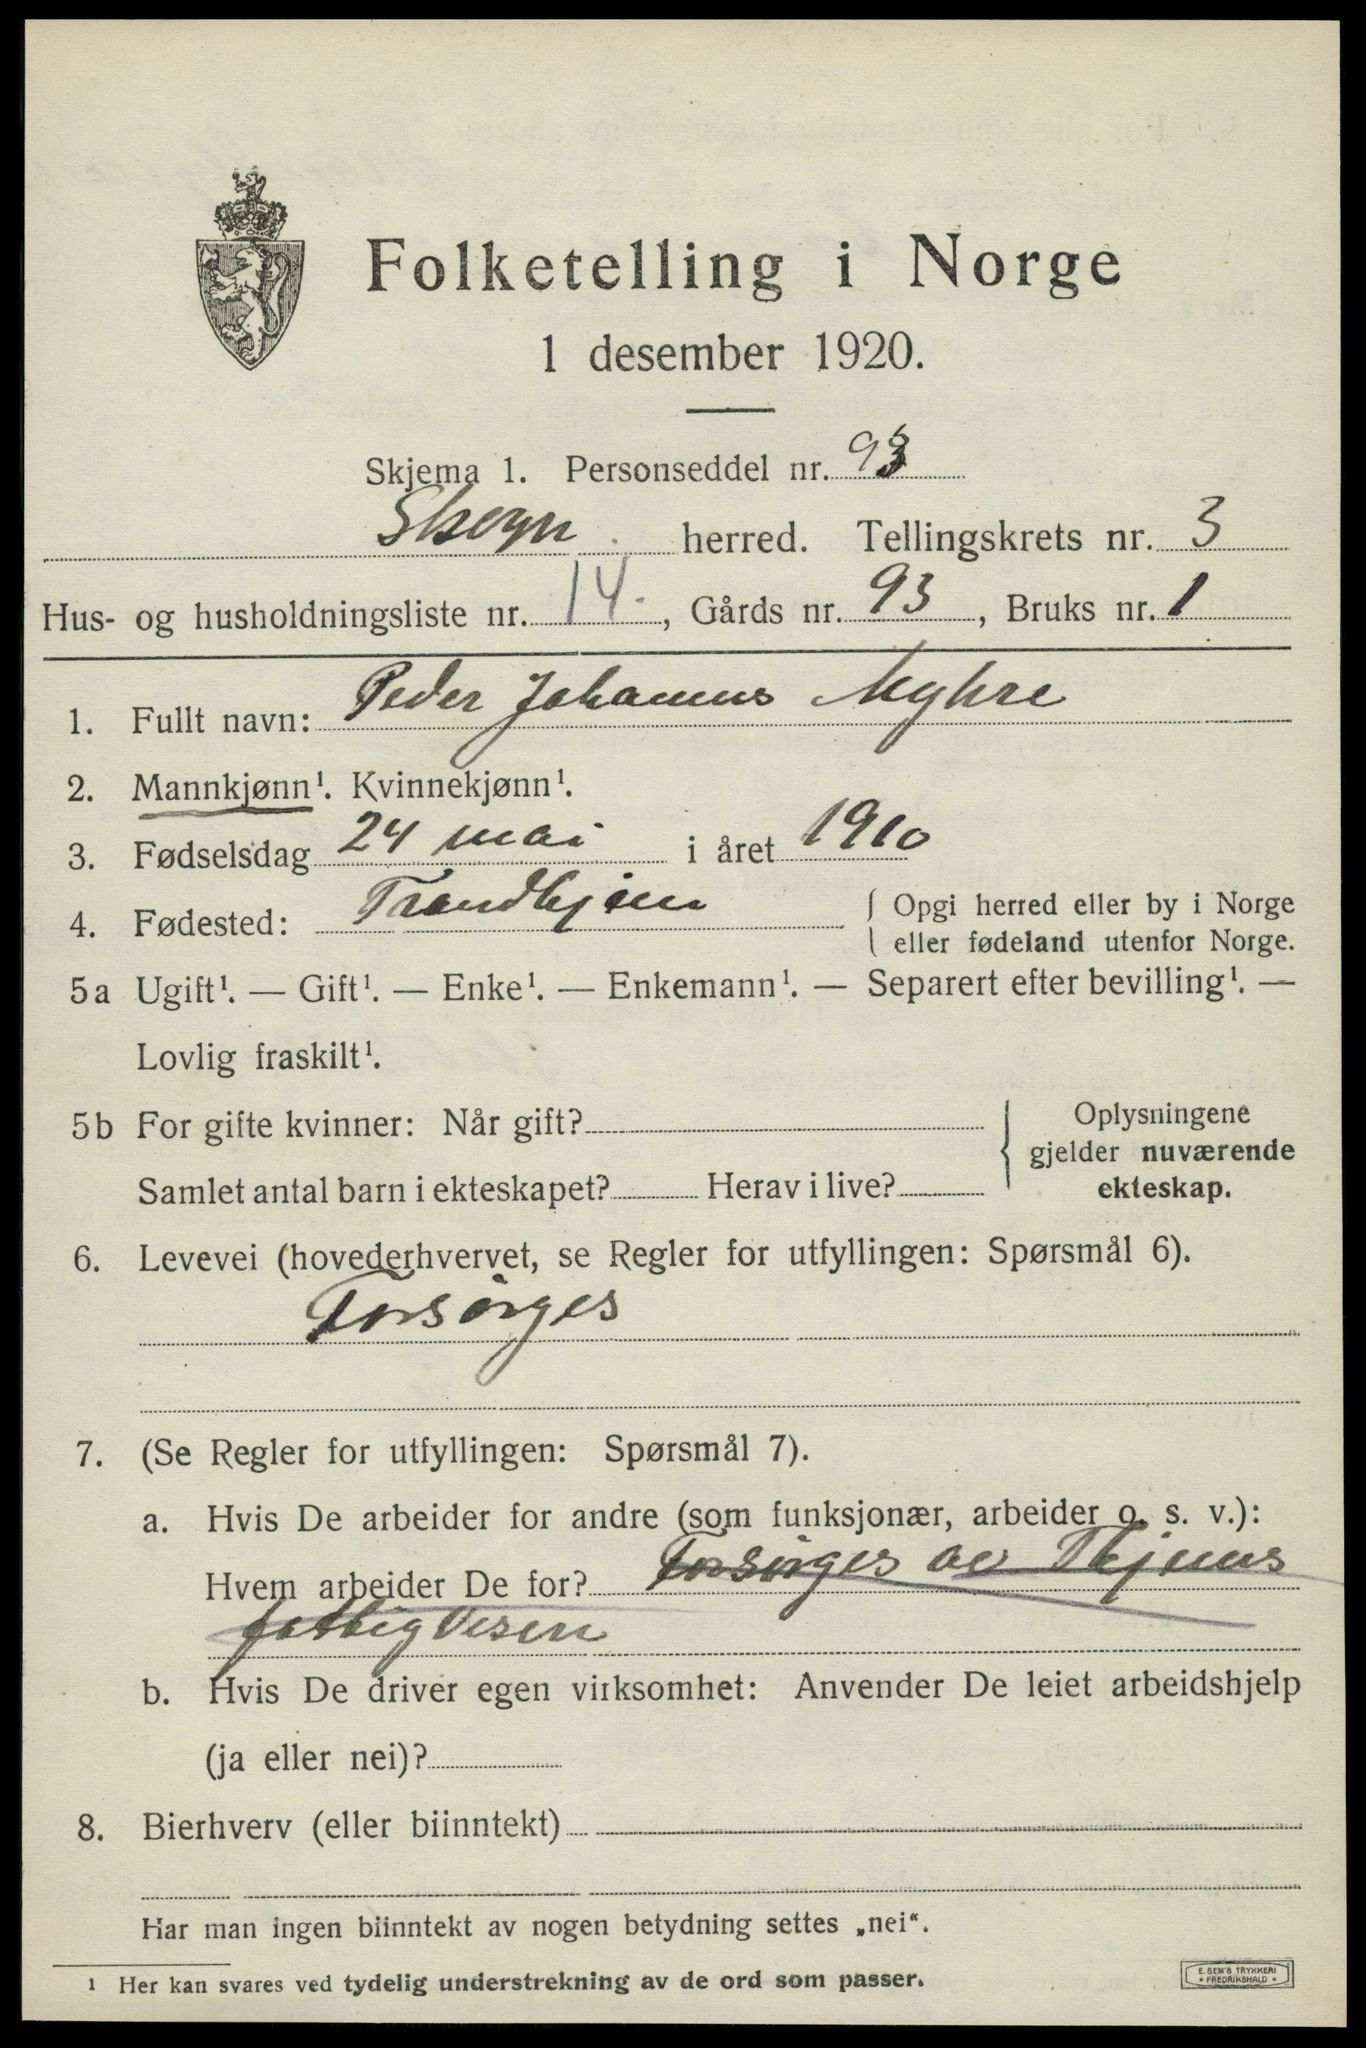 Folketelling i Norge
1 desember 1920.
Skjema 1. Personseddel nr. 93
Skogn herred. Tellingskrets nr. 3
Hus- og husholdningsliste nr. 14. , Gårds nr. 93 , Bruks nr. 1
1. Fullt navn: Peder Johannus Myhre
2. Mannkjønn¹. Kvinnekjønn¹.
3. Fødselsdag 24 mai i året 1910
4. Fødested: Trondhjem { Opgi herred eller by i Norge
eller fødeland utenfor Norge.
5a Ugift¹. — Gift¹. — Enke¹. — Enkemann¹. — Separert efter bevilling¹. —
Lovlig fraskilt¹.
5b For gifte kvinner: Når gift? } Oplysningene
gjelder nuværende
Samlet antal barn i ekteskapet? Herav i live? ekteskap.
6. Levevei (hovederhvervet, se Regler for utfyllingen: Spørsmål 6).
Forsørges
7. (Se Regler for utfyllingen: Spørsmål 7).
a. Hvis De arbeider for andre (som funksjonær, arbeider o. s. v.):
Hvem arbeider De for? Forsørges av Thjems
fattigvesen
b. Hvis De driver egen virksomhet: Anvender De leiet arbeidshjelp
(ja eller nei)?
8. Bierhverv (eller biinntekt)
Har man ingen biinntekt av nogen betydning settes „nei“.
1 Her kan svares ved tydelig understrekning av de ord som passer.
E. SEM'S TRYKKERI
* FREDRIKSHALD *